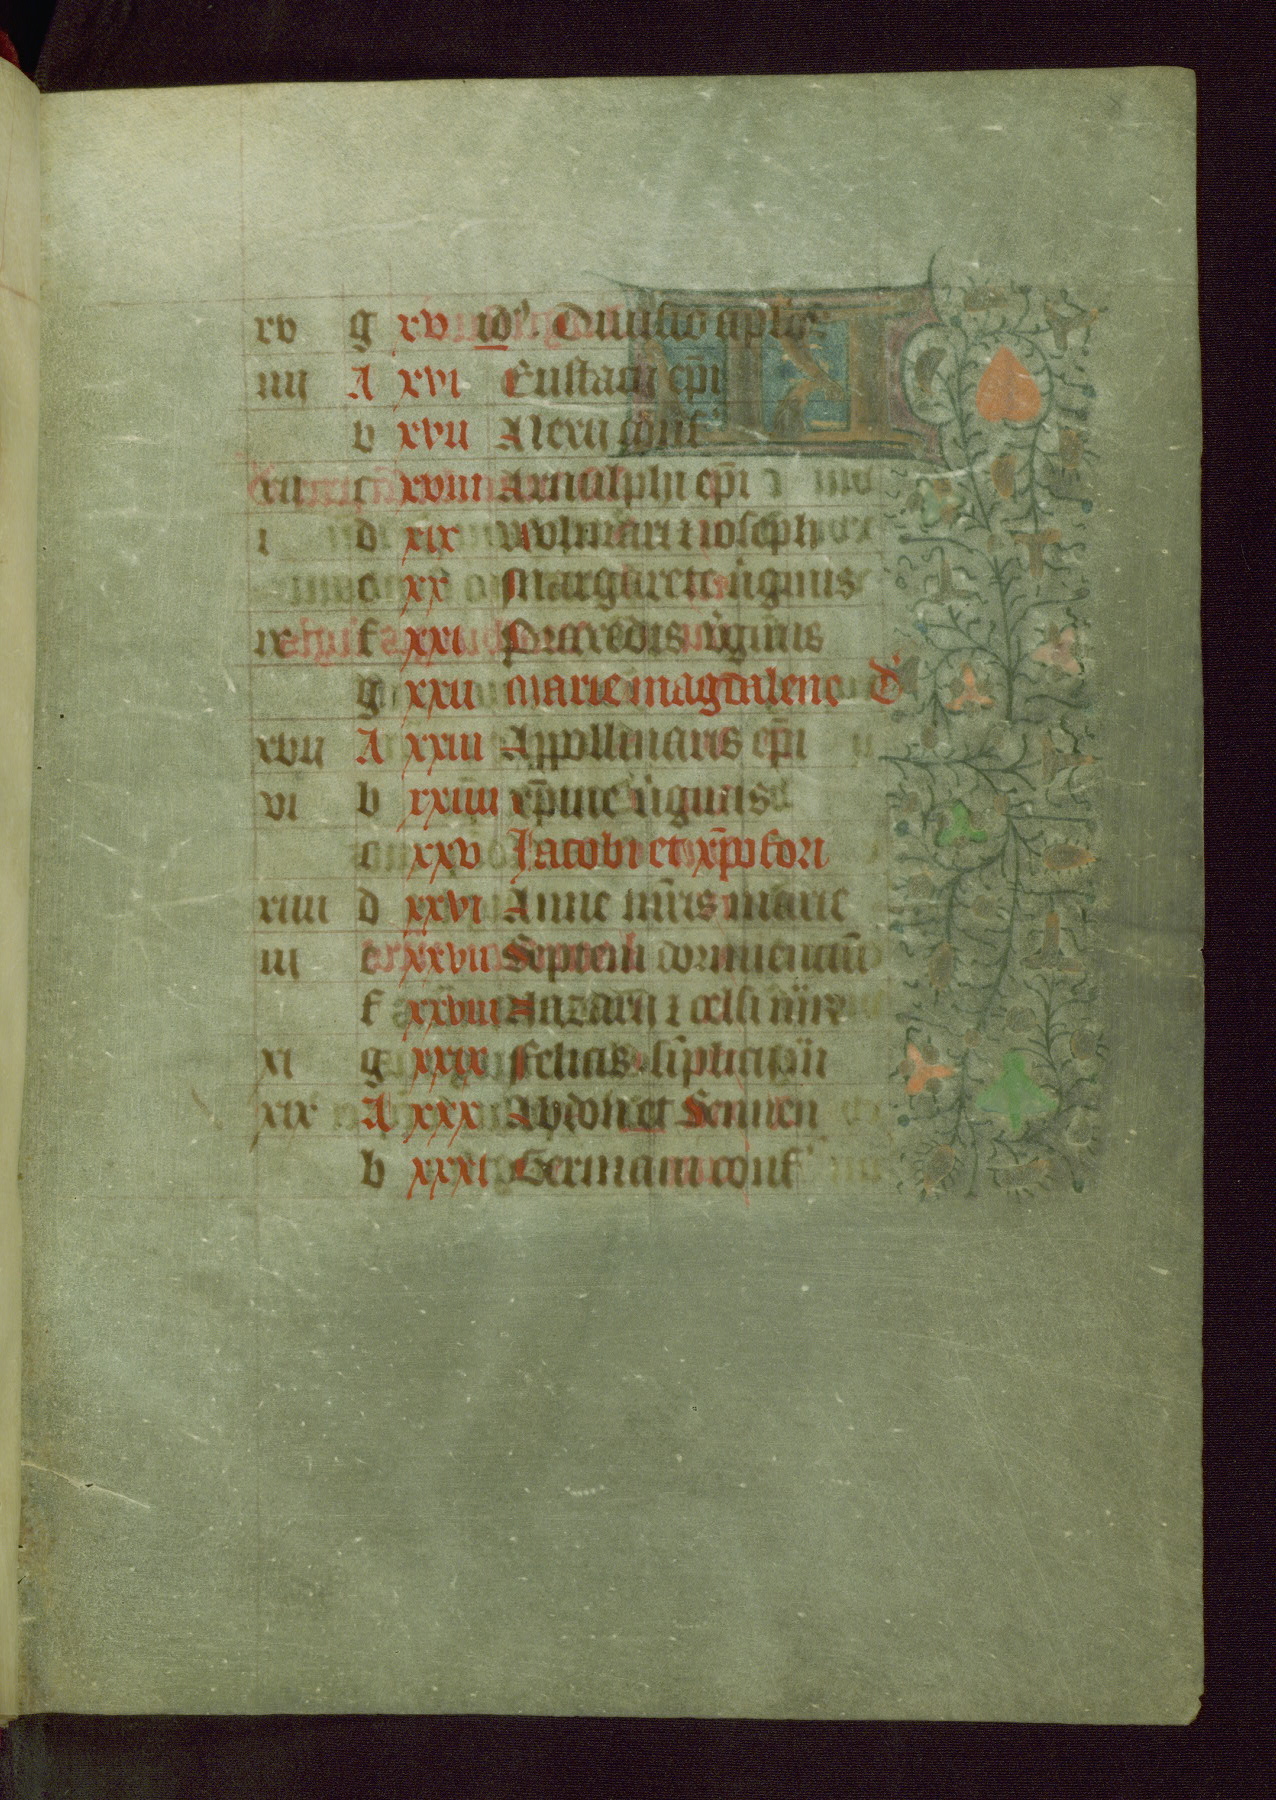 xv g xv id'. Diuisio aplor
iiii A xvi Eustacii ep̄i
b xvii Alexii conf'
xii c xviii Arnulphi ep̄i ⁊
i d xix Wlmari ⁊ ioseph
e xx Margarete ùginis
ix f xxi Praxedis ùginis
g xxii Marie magdalene d'
xvii A xxiii Appollinaris ep̄i
vi b xxiiii xp̄ine ùginis
c xxv Jacobi et xp̄ofori
xiiii d xxvi Anne mr̄is marie
iii e xxvii Septem dormienciū
f xxviii Nazarii ⁊ celsi mr̄
xi g xxix Felicis. simplicii
xix A xxx Abdon et Sennen
b xxxi Germani conf'